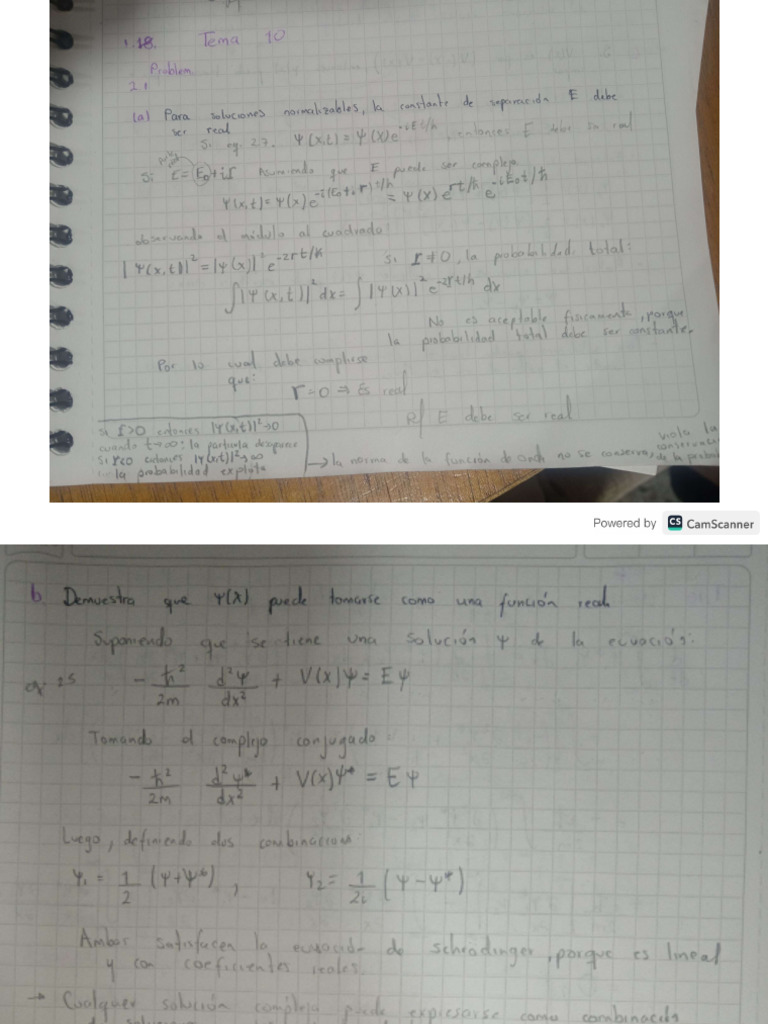 1.18. Tema 10
Problem
2.1
(a) Para soluciones normalizables, la constante de separación E debe
ser real
Si eq. 2.7. Ψ(x,t) = Ψ(x)e^{-iEt/ħ}, entonces E debe ser real
Si E = E₀ + iΓ Asumiendo que E puede ser compleja
Ψ(x,t) = Ψ(x)e^{-i(E₀+iΓ)t/ħ} = Ψ(x)e^{Γt/ħ} e^{-iE₀t/ħ}
observando el módulo al cuadrado:
|Ψ(x,t)|² = |Ψ(x)|² e^{-2Γt/ħ} Si Γ ≠ 0, la probabilidad total:
∫|Ψ(x,t)|² dx = ∫|Ψ(x)|² e^{-2Γt/ħ} dx
No es aceptable físicamente, porque
la probabilidad total debe ser constante.
Por lo cual debe cumplirse
que:
Γ = 0 ⇒ Es real
R/ E debe ser real
Si Γ>0 entonces |Ψ(x,t)|²→0
cuando t→∞: la partícula desaparece
Si Γ<0 entonces |Ψ(x,t)|²→∞
la probabilidad explota
→ la norma de la función de onda no se conserva,
viola la
conservación
de la probabi
Powered by CS CamScanner
b. Demuestra que Ψ(x) puede tomarse como una función real
Suponiendo que se tiene una solución Ψ de la ecuación:
eq 2.5 -ħ²/2m d²Ψ/dx² + V(x)Ψ = EΨ
Tomando el complejo conjugado:
-ħ²/2m d²Ψ*/dx² + V(x)Ψ* = EΨ
Luego, definiendo dos combinaciones:
Ψ₁ = 1/2 (Ψ+Ψ*), Ψ₂ = 1/2i (Ψ-Ψ*)
Ambas satisfacen la ecuación de schrodinger, porque es lineal
y con coeficientes reales.
→ Cualquier solución compleja puede expresarse como combinación